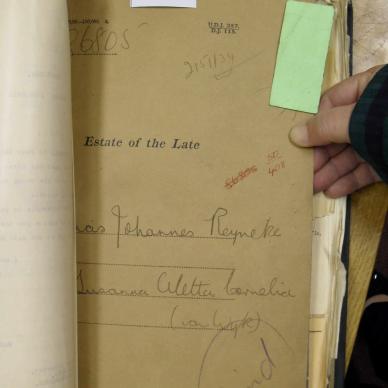 U.D.J. 237.
D.J. 113.
26805
2151/34
Estate of the Late
Johannes Reyneke
Susanna Aletta Cornelia
(van Wyk)